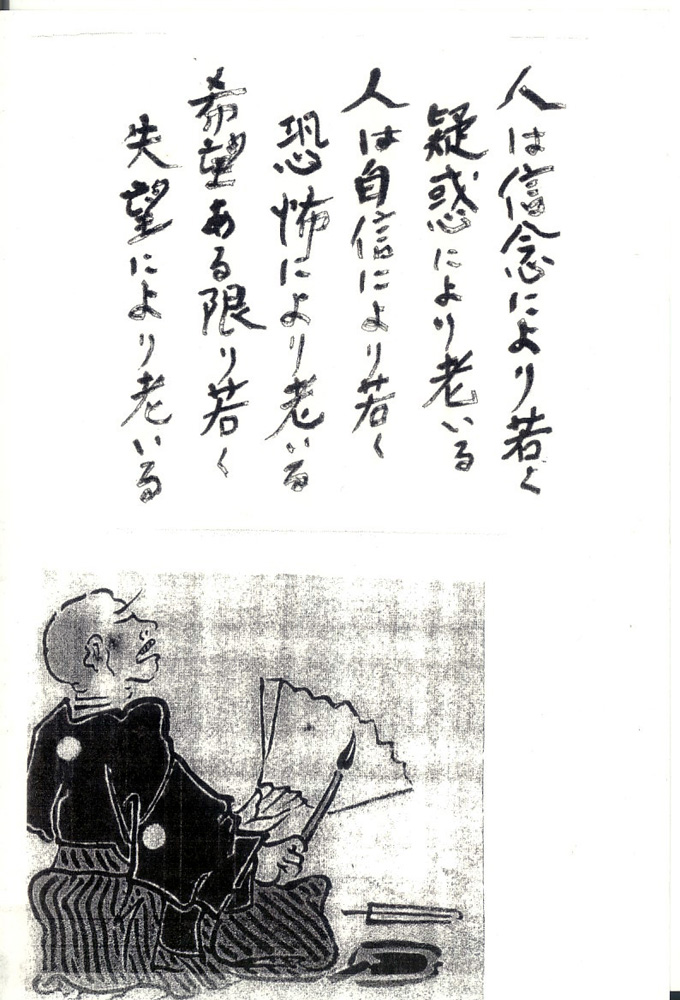 人は信念により若く
疑惑により老いる
人は自信により若く
恐怖により老いる
希望ある限り若く
失望により老いる